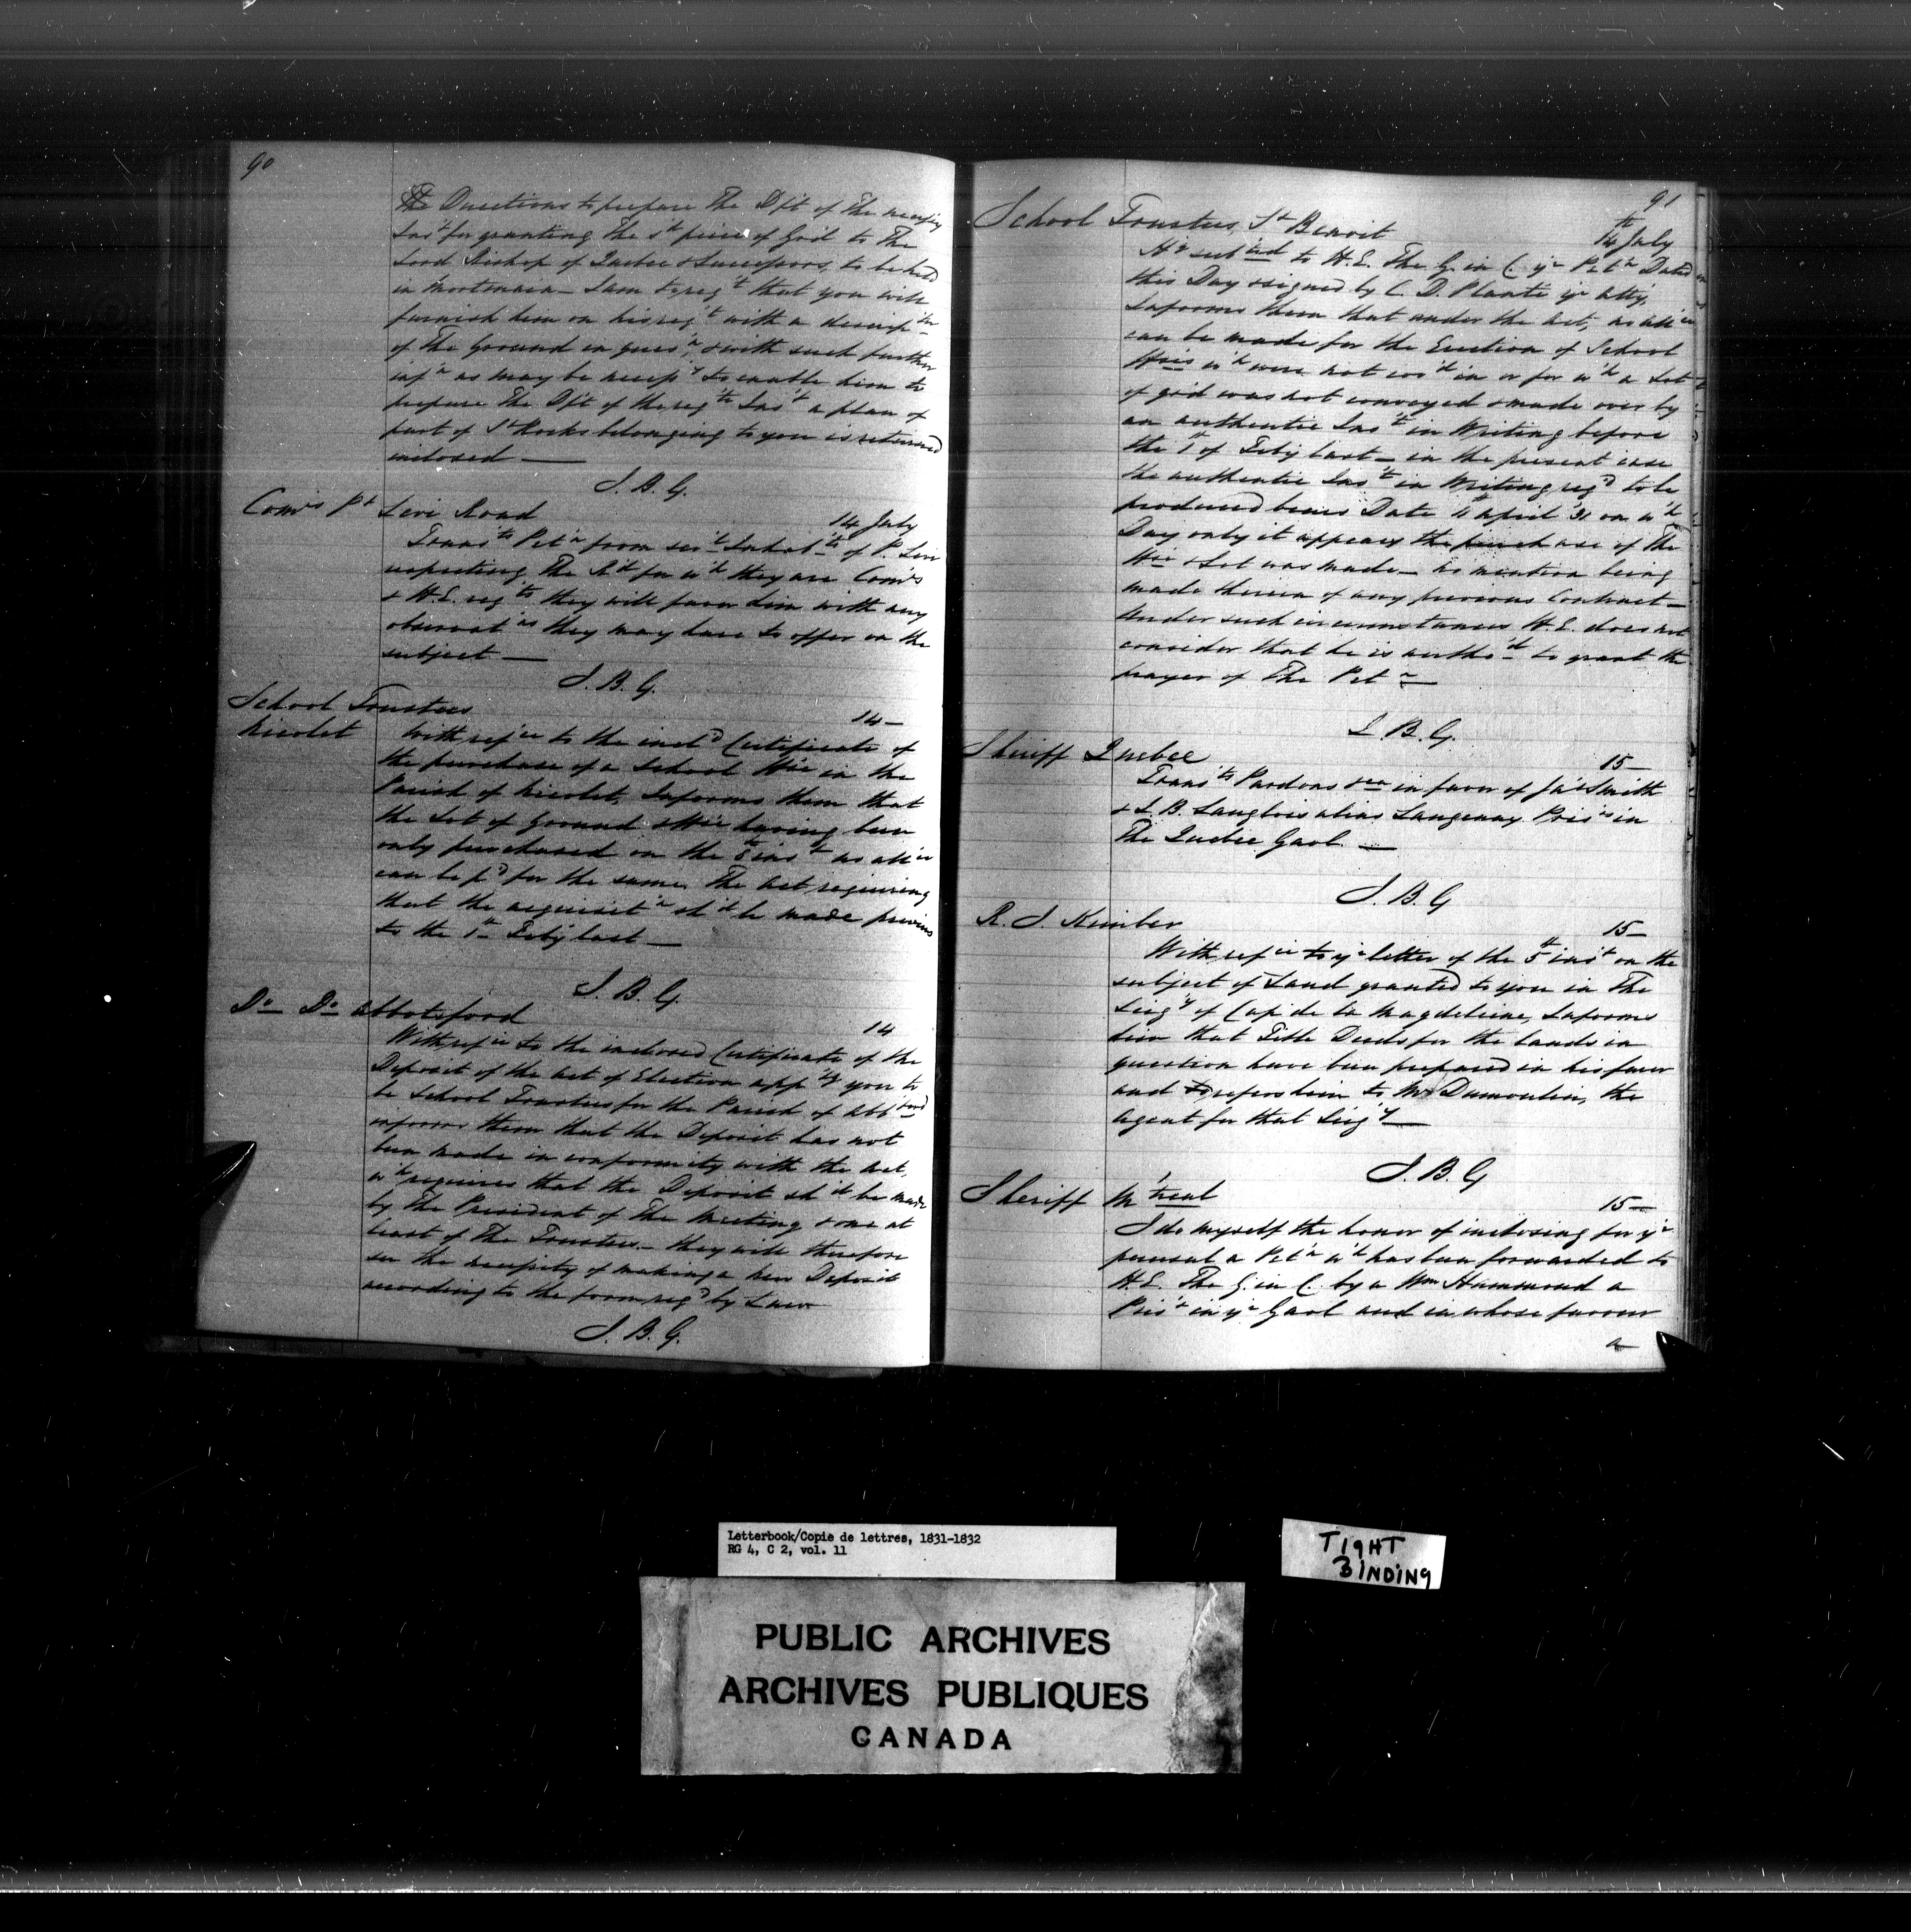 90
the Directions to prepare The Dft of The necessy
Inst for granting the sd piece of Grd to The
Lord Bishop of Quebec & Successors, to be held
in Mortmain — I am to reqt that you will
furnish him on his reqt with a descripton
of The Ground in quesn, & with such further
infn as may be necessy to enable him to
prepare The Dft of the reqte Inst a plan of
part of St Rocks belonging to you is returned
inclosed —
J. B. G.
Comrs Pt Levi Road 14 July
Transts Petn from sevl Inhabts of P. Levi
respecting The Rd for wh they are Comrs
& H.E. reqts they will favor him with any
observatns they may have to offer on the
subject —
J. B. G.
School Trustees 14 —
Nicolet With refce to the incld Certificate of
the purchase of a School Hse in the
Parish of Nicolet, Informs them that
the Lot of Ground & Hse having been
only purchased on the 8th inst no allce
can be pd for the same, The act requiring
that the acquisitn shd be made previous
to the 1st Feby last —
J. B. G.
Do Do Abbotsford 14
With refce to the inclosed Certificate of the
Deposit of the act of Election appg you to
be School Trustees for the Parish of Abbford
informs them that the Deposit has not
been made in conformity with the Act,
wh requires that the Deposit shd be made
by The President of The Meeting & one at
least of The Trustees — they will therefore
see the necessity of making a new Deposit
according to the form reqd by Law
J. B. G.
91
School Trustees, St Benoit 14th July
Hg subted to H.E. The G. in C. yr Petn Dated
this Day signed by C. D. Plante yr atty,
Informs them that under the Act, no allce
can be made for the Erection of School
Hses wh were not cosd in or for wh a Lot
of grd was not conveyed & made over by
an authentic Inst in Writing before
the 1st of Feby last — in the present case
the authentic Inst in Writing reqd to be
produced bears Date 11 April '31 on wh
Day only it appears the purchase of The
Hse & Lot was made — no mention being
made therein of any previous Contract —
Under such circumstances H.E. does not
consider that he is authod to grant the
prayer of The Petn —
J. B. G.
Sheriff Quebec 15 —
Transts Pardons in favor of Jas Smith
& J. B. Langlois alias Langenay Prisrs in
The Quebec Gaol. —
J. B. G
R. J. Kimber 15 —
With refce to yr letter of the 5th inst on the
subject of Land granted to you in The
Seigy of Cap de la Magdeleine, Informs
him that Title Deeds for the lands in
question have been prepared in his favor
and refers him to Mr Dumoulin, the
agent for that Seigy —
J. B. G
Sheriff Mtreal 15 —
I do myself the honor of inclosing for yr
perusal a Petn wh has been forwarded to
H.E. The G. in C. by a Wm Hammond a
Prisr in yr Gaol and in whose favour
a
Letterbook/Copie de lettres, 1831-1832
RG 4, C 2, vol. 11
TIGHT
BINDING
PUBLIC ARCHIVES
ARCHIVES PUBLIQUES
CANADA